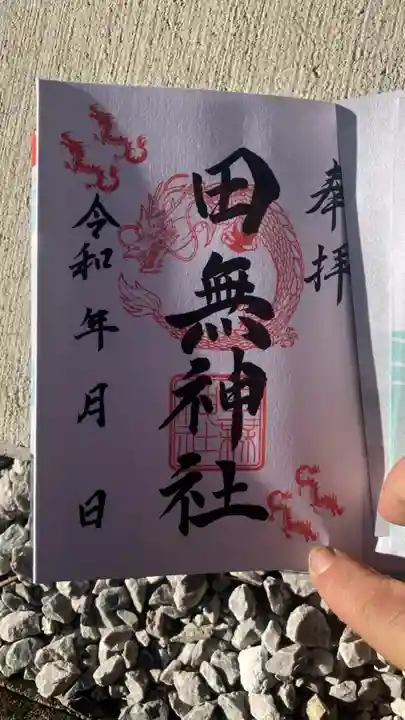 奉拝
田無神社
令和年月日